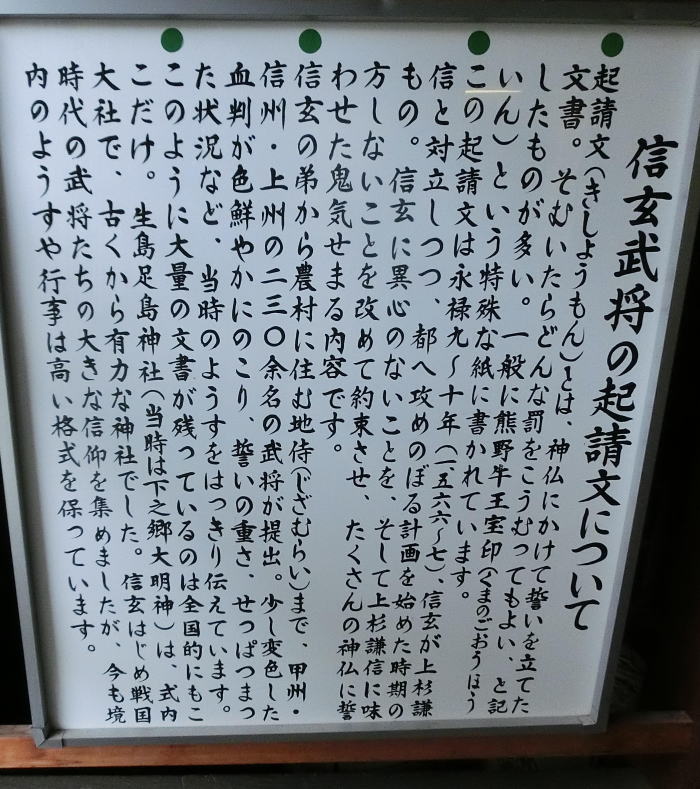 信玄武将の起請文について
起請文(きしょうもん)とは、神仏にかけて誓いを立てた
文書。そむいたらどんな罰をこうむってもよい、と記
したものが多い。一般に熊野牛王宝印(くまのごおうほう
いん)という特殊な紙に書かれています。
この起請文は永禄九〜十年(一五六六〜七)、信玄が上杉謙
信と対立しつつ、都へ攻めのぼる計画を始めた時期の
もの。信玄に異心のないことを、そして上杉謙信に味
方しないことを改めて約束させ、たくさんの神仏に誓
わせた鬼気せまる内容です。
信玄の弟から農村に住む地侍(じざむらい)まで、甲州・
信州・上州の二三〇余名の武将が提出。少し変色した
血判が色鮮やかにのこり、誓いの重さ、せっぱつまっ
た状況など、当時のようすをはっきり伝えています。
このように大量の文書が残っているのは全国的にもこ
こだけ。生島足島神社(当時は下之郷大明神)は、式内
大社で、古くから有力な神社でした。信玄はじめ戦国
時代の武将たちの大きな信仰を集めましたが、今も境
内のようすや行事は高い格式を保っています。